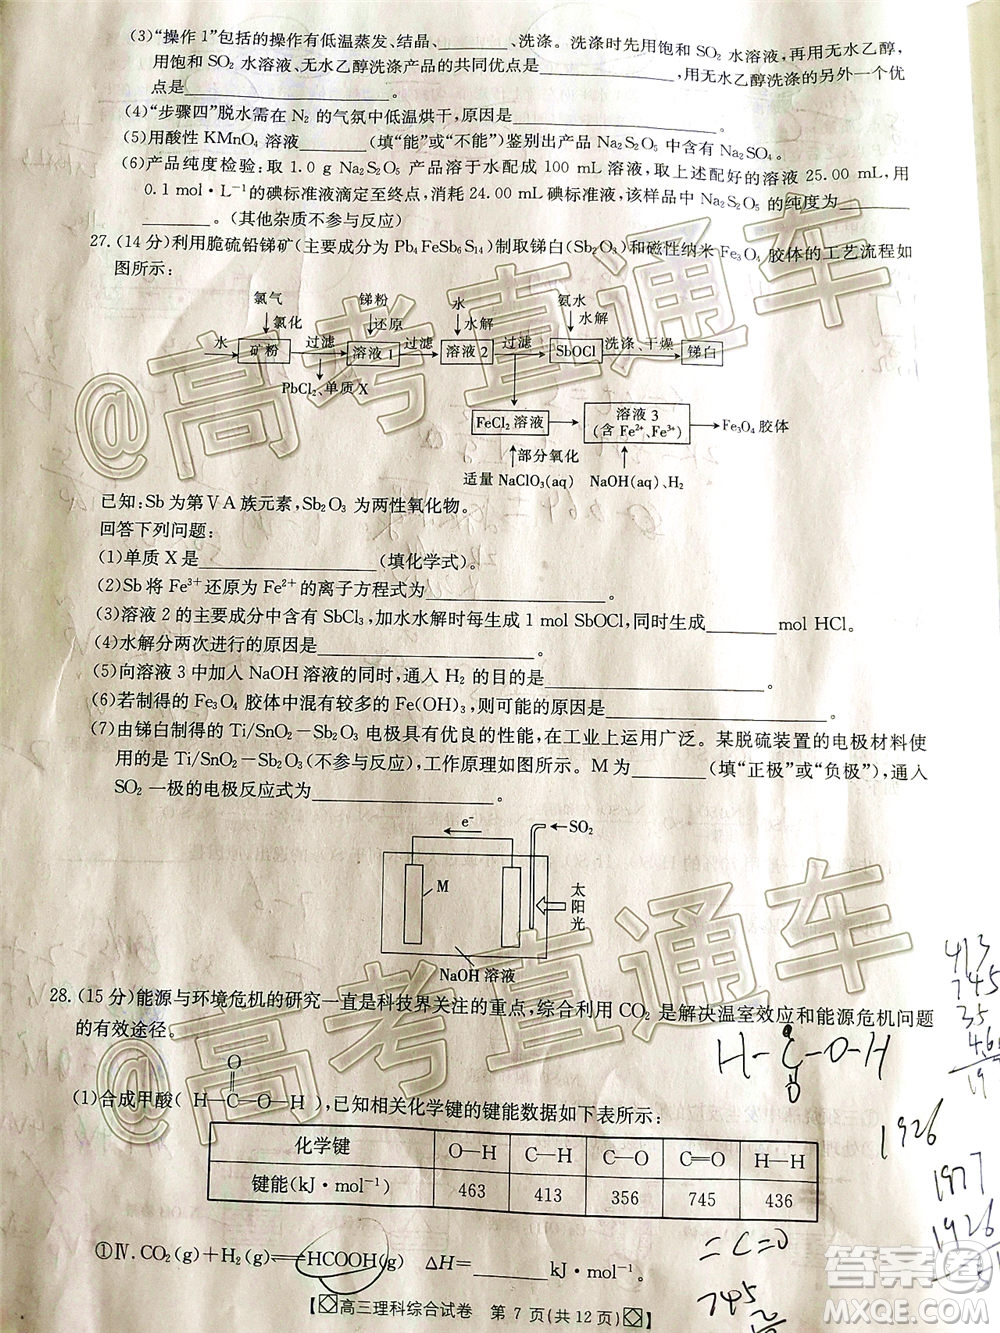 (3)“操作1”包括的操作有低温蒸发、结晶、________、洗涤。洗涤时先用饱和SO₂水溶液,再用无水乙醇,
用饱和SO₂水溶液、无水乙醇洗涤产品的共同优点是________,用无水乙醇洗涤的另外一个优
点是________。
(4)“步骤四”脱水需在N₂的气氛中低温烘干,原因是________。
(5)用酸性KMnO₄溶液________(填“能”或“不能”)鉴别出产品Na₂S₂O₅中含有Na₂SO₄。
(6)产品纯度检验:取1.0 g Na₂S₂O₅产品溶于水配成100 mL溶液,取上述配好的溶液25.00 mL,用
0.1 mol·L⁻¹的碘标准液滴定至终点,消耗24.00 mL碘标准液,该样品中Na₂S₂O₅的纯度为________
________。(其他杂质不参与反应)
27.(14分)利用脆硫铅锑矿(主要成分为Pb₄FeSb₆S₁₄)制取锑白(Sb₂O₃)和磁性纳米Fe₃O₄胶体的工艺流程如
图所示:
氯气 锑粉 水 氨水
氯化 还原 水解 水解
水 矿粉 过滤 溶液1 过滤 溶液2 过滤 SbOCl 洗涤、干燥 锑白
PbCl₂、单质X
FeCl₂溶液 溶液3 (含Fe²⁺、Fe³⁺) Fe₃O₄胶体
部分氧化
适量NaClO₃(aq) NaOH(aq)、H₂
已知:Sb为第ⅤA族元素,Sb₂O₃为两性氧化物。
回答下列问题:
(1)单质X是________(填化学式)。
(2)Sb将Fe³⁺还原为Fe²⁺的离子方程式为________。
(3)溶液2的主要成分中含有SbCl₃,加水水解时每生成1 mol SbOCl,同时生成________mol HCl。
(4)水解分两次进行的原因是________。
(5)向溶液3中加入NaOH溶液的同时,通入H₂的目的是________。
(6)若制得的Fe₃O₄胶体中混有较多的Fe(OH)₃,则可能的原因是________。
(7)由锑白制得的Ti/SnO₂-Sb₂O₃电极具有优良的性能,在工业上运用广泛。某脱硫装置的电极材料使
用的是Ti/SnO₂-Sb₂O₃(不参与反应),工作原理如图所示。M为________(填“正极”或“负极”),通入
SO₂一极的电极反应式为________。
e⁻
SO₂
M
太阳光
NaOH溶液
28.(15分)能源与环境危机的研究一直是科技界关注的重点,综合利用CO₂是解决温室效应和能源危机问题
的有效途径。
O
(1)合成甲酸(H—C—O—H),已知相关化学键的键能数据如下表所示:
化学键 O—H C—H C—O C=O H—H
键能(kJ·mol⁻¹) 463 413 356 745 436
①Ⅳ.CO₂(g)+H₂(g)⇌HCOOH(g) ΔH=________kJ·mol⁻¹。
【高三理科综合试卷 第7页(共12页)】
H-C-O-H
O
413
745
1926
1977
1926
=C=O
745
@高考直通车
@高考直通车
答案圈
MXQE.COM